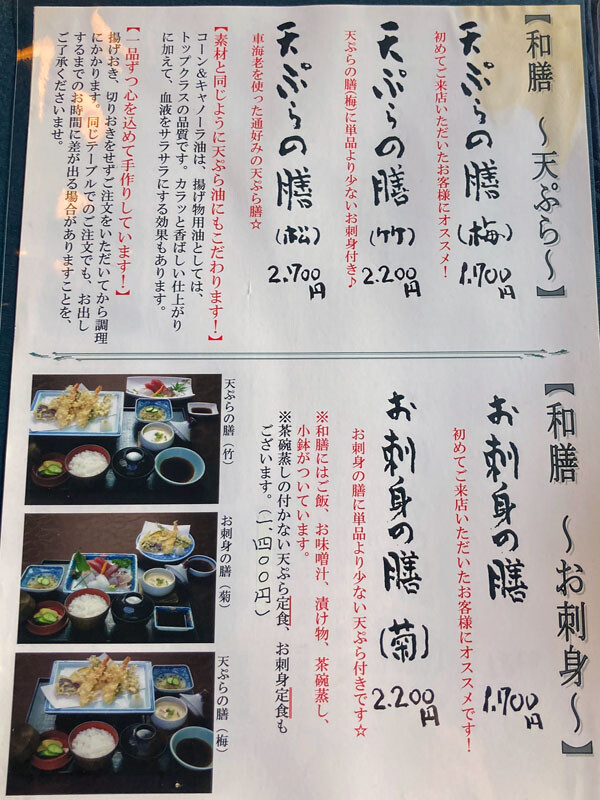 【和膳 ～天ぷら～】
天ぷらの膳(梅) 1.700円
初めてご来店いただいたお客様にオススメ！
天ぷらの膳(竹) 2.200円
天ぷらの膳(梅)に単品より少ないお刺身付き♪
天ぷらの膳(松) 2.700円
車海老を使った通好みの天ぷら膳☆
【素材と同じように天ぷら油にもこだわります！】
コーン&キャノーラ油は、揚げ物用油としては、
トップクラスの品質です。カラッと香ばしい仕上がり
に加えて、血液をサラサラにする効果もあります。
【一品ずつ心を込めて手作りしています！】
揚げおき、切りおきをせずご注文をいただいてから調理
にかかります。同じテーブルでのご注文でも、お出し
するまでのお時間に差が出る場合がありますことを、
ご了承くださいませ。
【和膳 ～お刺身～】
お刺身の膳 1.700円
初めてご来店いただいたお客様にオススメです！
お刺身の膳(菊) 2.200円
お刺身の膳に単品より少ない天ぷら付きです☆
※和膳にはご飯、お味噌汁、漬け物、茶碗蒸し、
小鉢がついています。
※茶碗蒸しの付かない天ぷら定食、お刺身定食も
ございます。(一、四〇〇円)
天ぷらの膳(竹)
お刺身の膳(菊)
天ぷらの膳(梅)